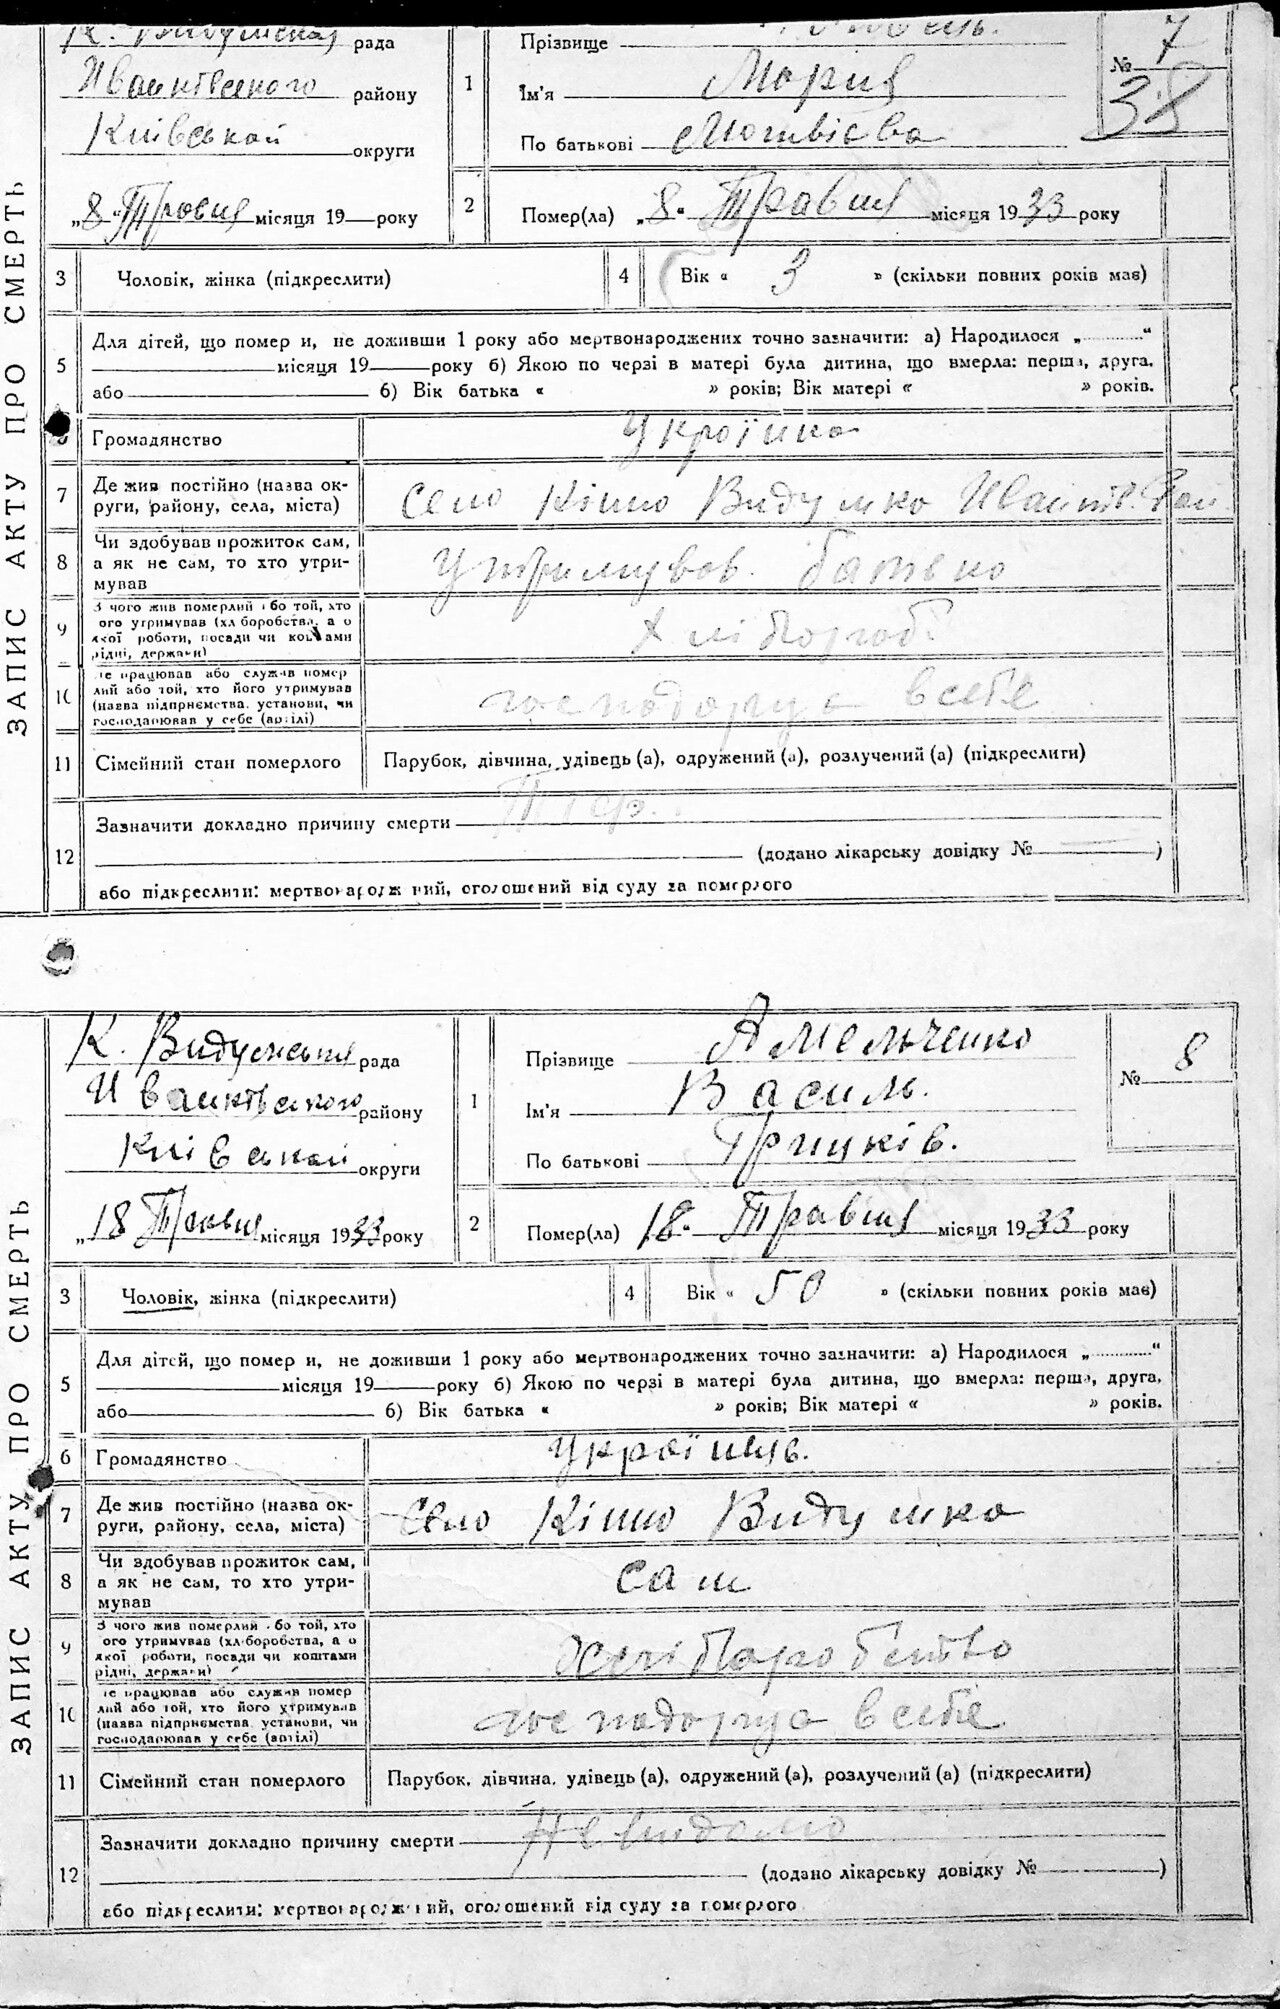 ЗАПИС АКТУ ПРО СМЕРТЬ
рада
Иванківського району
Київської округи
„8“ Травня місяця 19 року
1
Прізвище
Ім'я Мария
По батькові Мотвієва
№ 7
38
2
Помер(ла) „8“ Травня місяця 1933 року
3 Чоловік, жінка (підкреслити)
4 Вік « 3 » (скільки повних років має)
5
Для дітей, що помер и, не доживши 1 року або мертвонароджених точно зазначити: а) Народилося „ “
місяця 19 року б) Якою по черзі в матері була дитина, що вмерла: перша, друга,
або б) Вік батька « » років; Вік матері « » років.
Громадянство Украінка
7 Де жив постійно (назва ок-
руги, району, села, міста)
Село Кінно Видумка Иванків. Рай.
8 Чи здобував прожиток сам,
а як не сам, то хто утри-
мував
Утримував. батько
9 З чого жив померлий або той, хто
ого утримував (хл боробства, а о
якої роботи, посади чи коштами
рідні, держави)
Хлібороб
10 е працював або служив помер
лий або той, хто його утримував
(назва підприємства, установи, чи
господарював у себе (артілі)
господарує в себе
11 Сімейний стан померлого Парубок, дівчина, удівець (а), одружений (а), розлучений (а) (підкреслити)
12 Зазначити докладно причину смерти Тіф.
(додано лікарську довідку № )
або підкреслити: мертвонароджений, оголошений від суду за померлого
ЗАПИС АКТУ ПРО СМЕРТЬ
К. Видумська рада
Иванківського району
Київської округи
„18 Травня місяця 1933 року
1
Прізвище Амельченко
Ім'я Василь.
По батькові Грицків.
№ 8
2
Помер(ла) 18“ Травня місяця 1933 року
3 Чоловік, жінка (підкреслити)
4 Вік « 50 » (скільки повних років має)
5
Для дітей, що помер и, не доживши 1 року або мертвонароджених точно зазначити: а) Народилося „ “
місяця 19 року б) Якою по черзі в матері була дитина, що вмерла: перша, друга,
або б) Вік батька « » років; Вік матері « » років.
6 Громадянство Украінець.
7 Де жив постійно (назва ок-
руги, району, села, міста)
Село Кінно Видумка
8 Чи здобував прожиток сам,
а як не сам, то хто утри-
мував
сам
9 З чого жив померлий або той, хто
ого утримував (хл боробства, а о
якої роботи, посади чи коштами
рідні, держави)
хліборобство
10 е працював або служив помер
лий або той, хто його утримував
(назва підприємства, установи, чи
господарював у себе (артілі)
господарує в себе
11 Сімейний стан померлого Парубок, дівчина, удівець (а), одружений (а), розлучений (а) (підкреслити)
12 Зазначити докладно причину смерти Не видомо
(додано лікарську довідку № )
або підкреслити: мертвонароджений, оголошений від суду за померлого